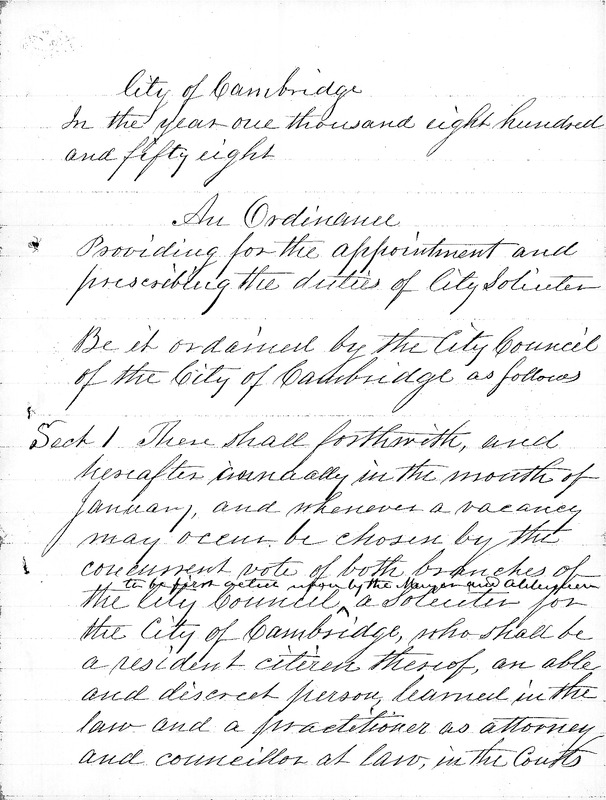 City of Cambridge
In the year one thousand eight hundred
and fifty eight
An Ordinance
Providing for the appointment and
prescribing the duties of City Soliciter
Be it ordained by the City Council
of the City of Cambridge as follows
Sect 1 There shall forthwith, and
hereafter annually in the month of
January, and whenever a vacancy
may occur be chosen by the
concurrent vote of both branches of
to be first acted upon by the Mayor and Aldermen
the City Council ^ a Soliciter for
the City of Cambridge, who shall be
a resident citizen thereof, an able
and discreet person, learned in the
law and a practitioner as attorney
and councillor at law, in the Courts